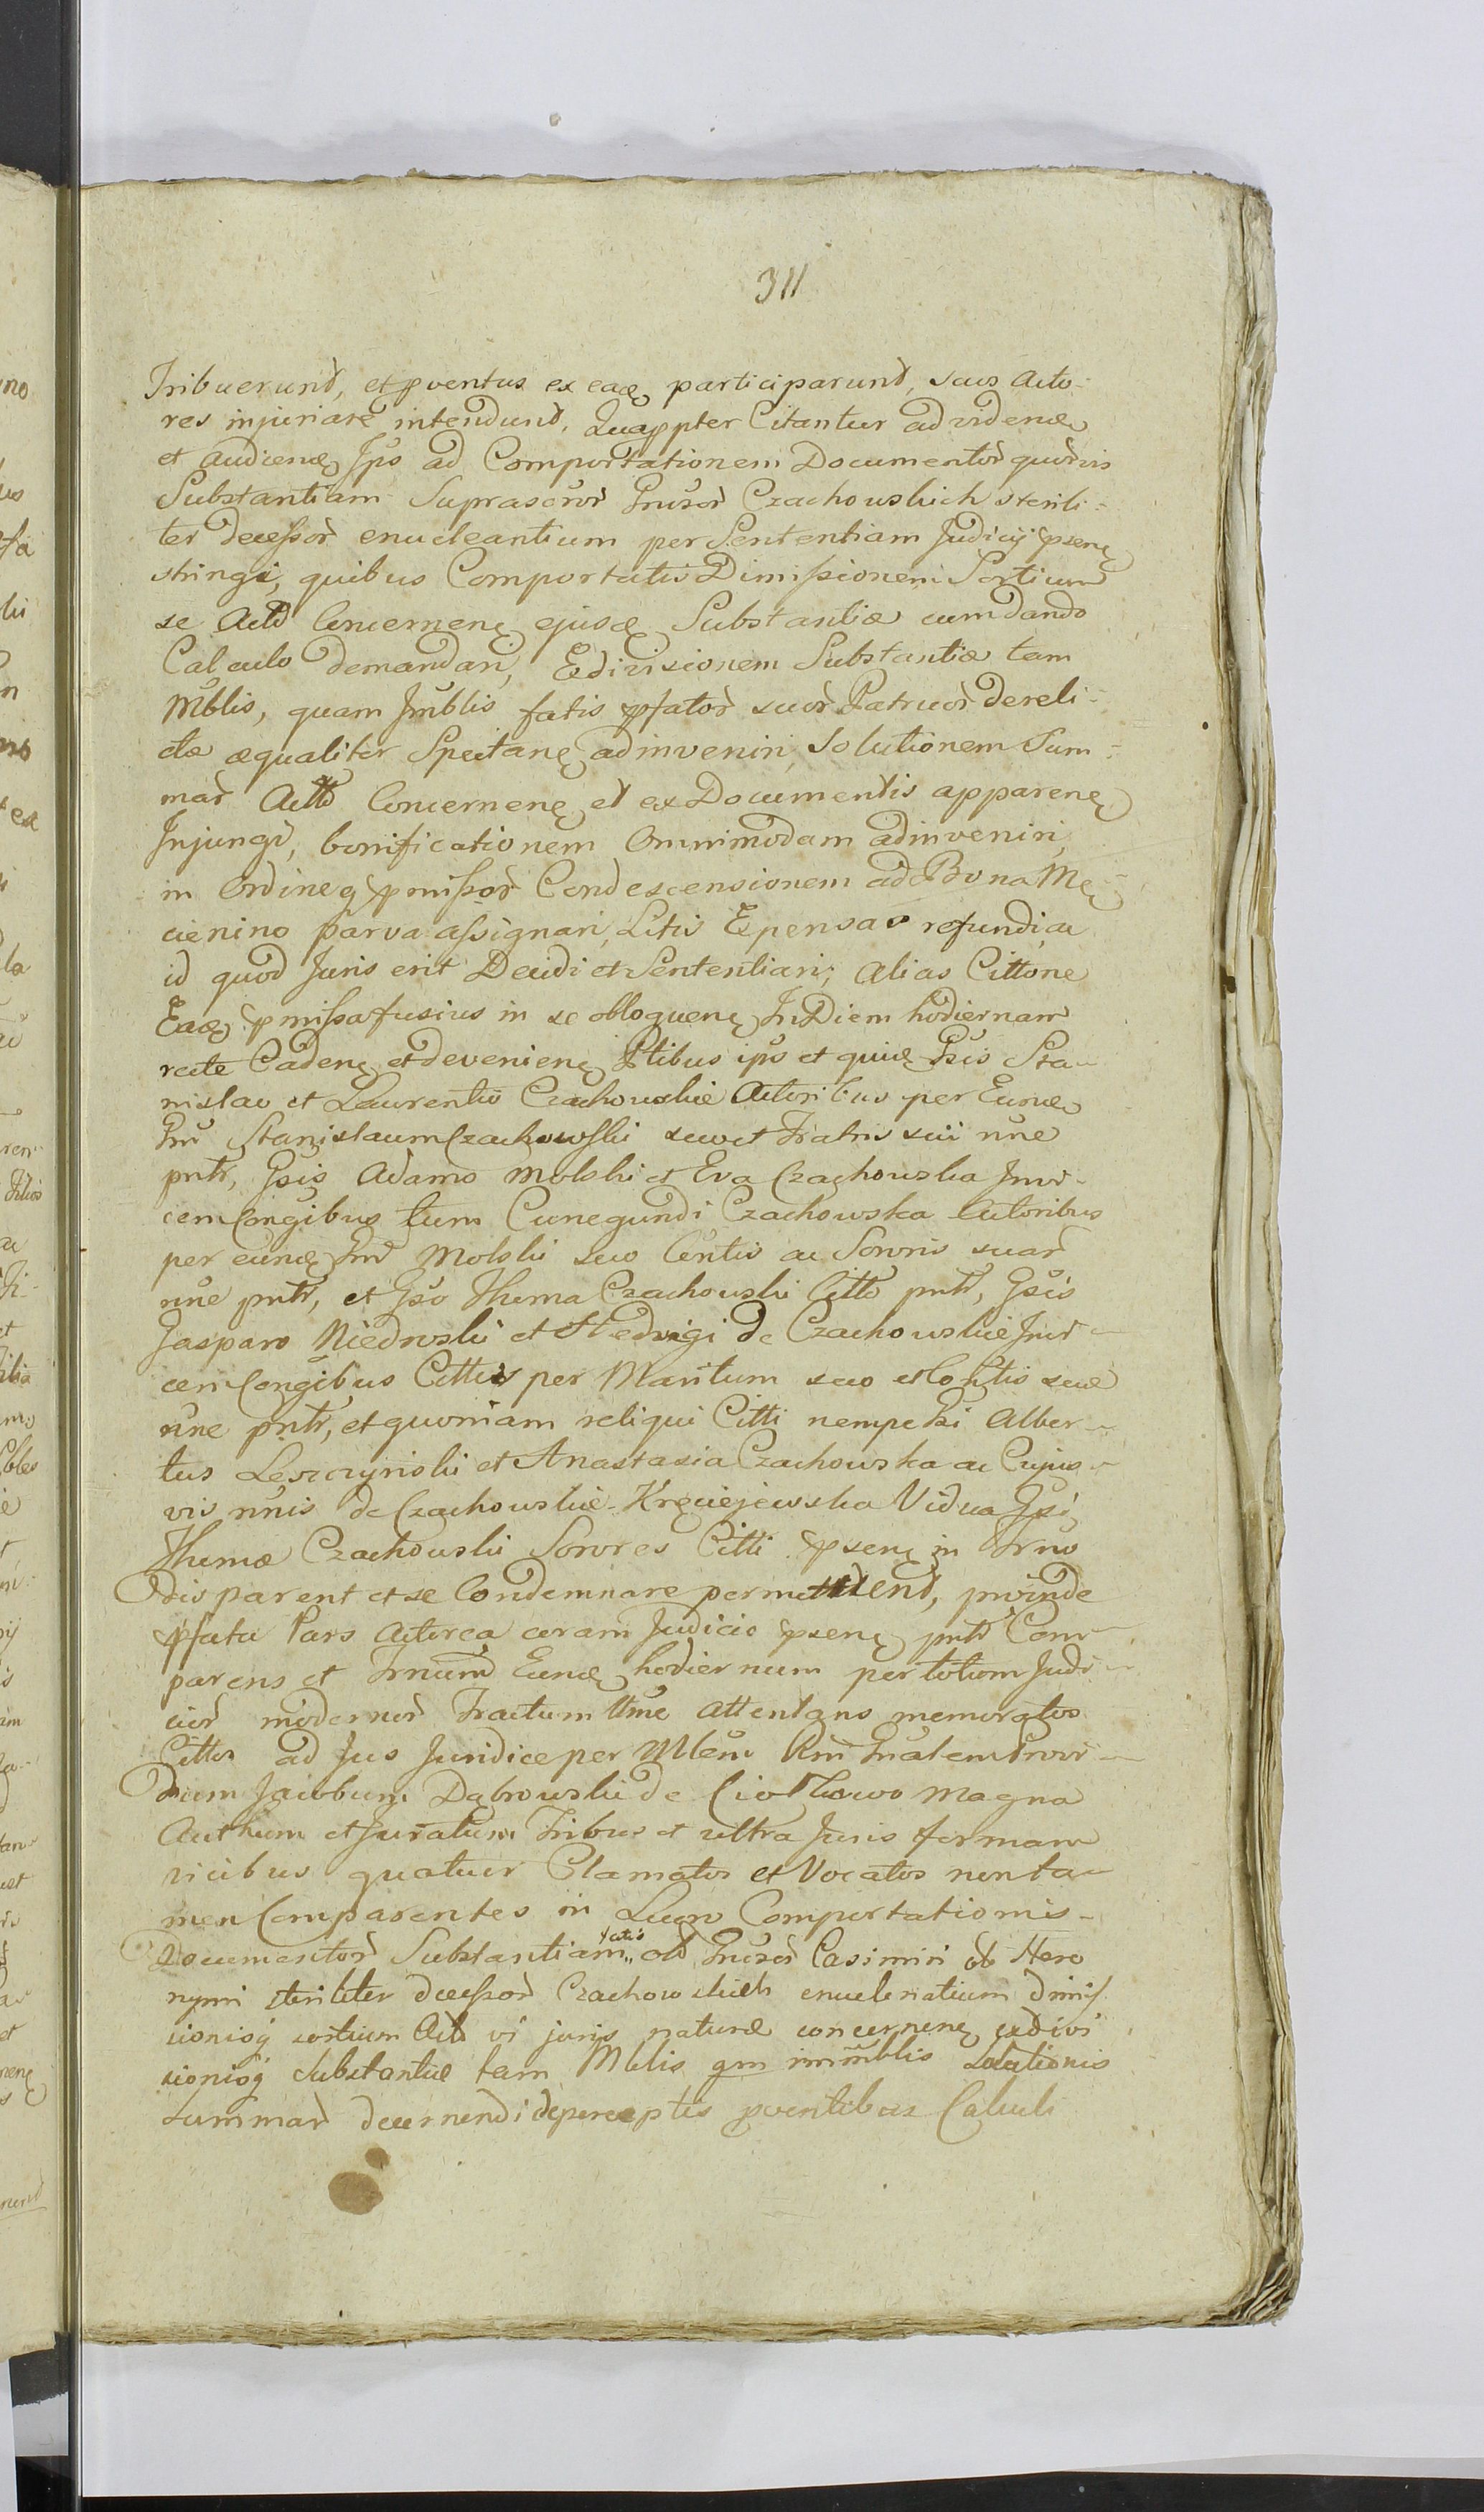 311
Tribuerunt, et pventus ex eadę participarunt, suos Acto-
res injuriare intendunt, Quappter Citantur ad videndę
et Audiendę Ipõ ad Comportationem Documentor̃ quõrvis
Substantiam Suprascr̃or̃ Gñrosor̃ Czachowskich sterili-
ter decessor̃ enucleantium per Sententiam Judicij p̃senę
stringi, quibus Comportatis Dimissionem Sortium
se Actõ Concernenę ejusdę Substantiæ cum dando
Calculo demandari, Exdivisionem Substantiæ tam
Mb̃lis, quam Im̃blis fatis p̃fator̃ suor̃ Patruor̃ dereli-
ctæ æqualiter Spectanę adinveniri, Solutionem Sum-
mar̃ Acttõ Concernenę et ex Documentis apparenę
Injungi, bonificationem Omnimodam adinveniri,
in Ordineq p̃missor̃ Condescensionem ad Bona Mę-
cienino parva assignari, Litis Expensas refundi, ac
id quod Juris erit Decidi et Sententiari; alias Cittõne
Eadę p̃missa fusius in se obloquenę In Diem hodiernam
recte Cadenę et devenienę Ptibus ip̃is et quidę Gsis Sta-
nislao et Laurentio Czachowskie Actoribus per Eundę
Gñr̃ Stanislaum Czachowski suo et Fratris sui nũne
pñtr̃, Gsis Adamo Molski et Eva Czachowska Invi-
cem Conj̃gibus tum Cunegundi Czachowska Actoribus
per eundę Gñr̃ Molski suo Cõntis ac Sororis suar̃
nũne pñtr̃, et Gso Thoma Czachowski Citto pñtr̃, Gsis
Gasparo Niedroski et Hedvigi de Czachowskie Invi-
cem Conj̃gibus Cittis per Maritum suo et Contis suæ
nũne pñtr̃, et quoniam reliqui Citti nempe Gsi Alber-
tus Leszczynski et Anastasia Czachowska ac Cujus-
vis nõnis de Czachowskie Kręciejewska Vidua Gsi
Thomæ Czachowski Sorores Citti p̃senę in Trno
disparent et se Condemnare permittend, proinde
p̃fata Pars Actorea coram Judicio p̃senę pñtr̃ Com-
parens et Trnum Eundę hodiernum per totum Judi-
cior̃ modernor̃ Tractum Ulme attentans memoratos
Cittos ad Jus Juridice per Mlem Rm̃ Gñalem Provi-
dum Jacobum Dąbrowski de Ciotkowo Magna
Authum et Juratum Tribus et ultra Juris formam
vicibus quatuor Clamatos et Vocatos non ta-
men Comparentes in Lucro Comportationis
Documentor̃ Substantiam fatis olĩ Gñrosor̃ Casimiri et Hero
nymi steriliter decessor̃ Czachowskich enucleantium dimis
sionisq̃ sortium Actõ vi juris naturæ concernenę exdivi
sionisq̃ Substantiæ tam Mblis qm immblis Solutionis
Summar̃ decernendi de perceptis pventibus Calculi